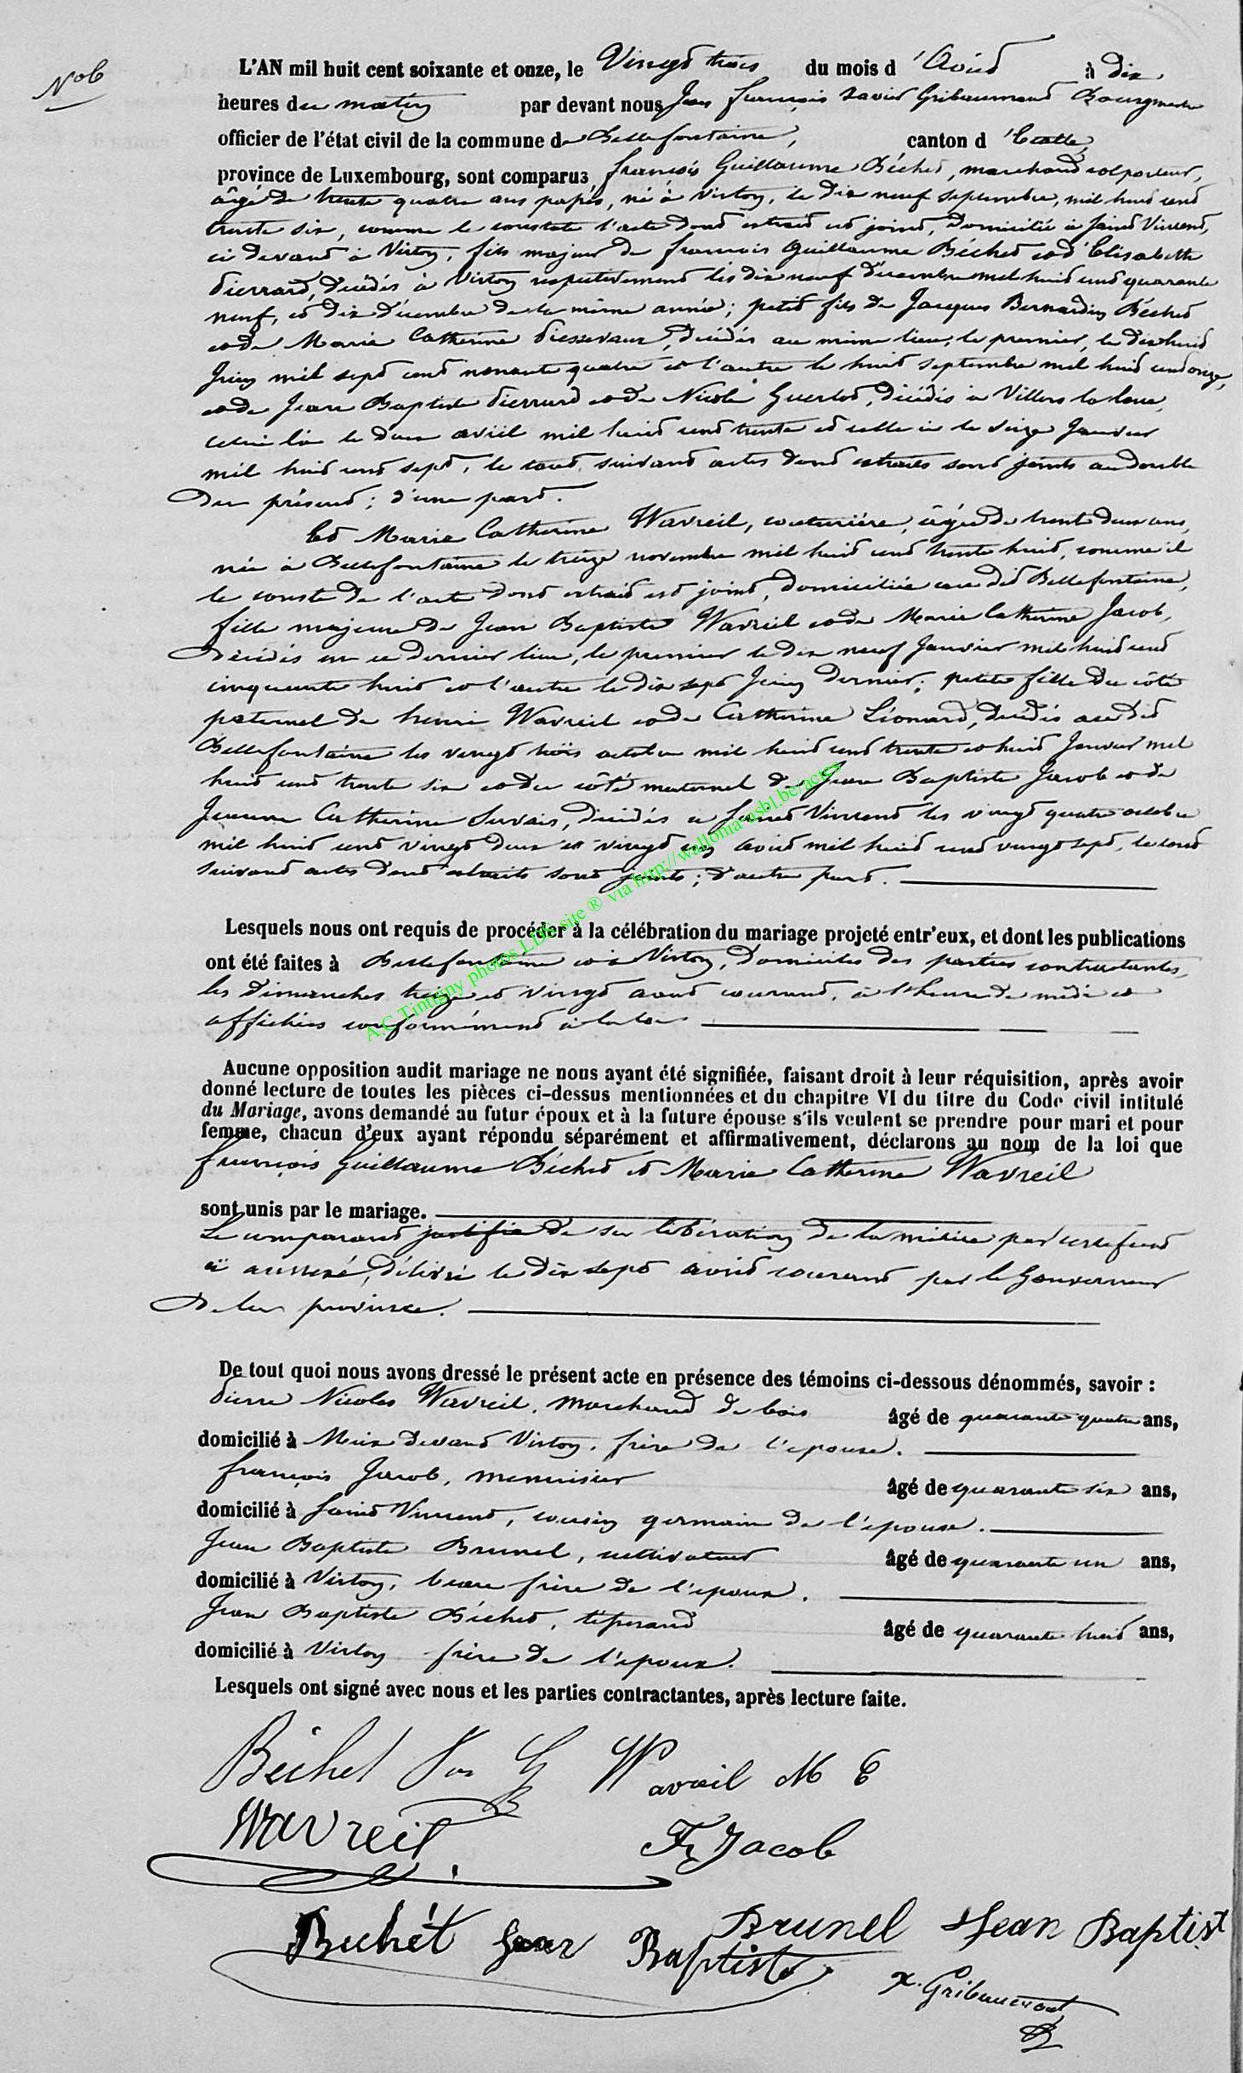 N° 6
L'AN mil huit cent soixante et onze, le Vingt trois du mois d'Août à dix
heures du matin par devant nous Jean françois Xavier Gribaumont Bourgmestre
officier de l'état civil de la commune de Bellefontaine, canton d'Etalle,
province de Luxembourg, sont comparus françois Guillaume Béchet, marchand colporteur,
âgé de trente quatre ans passés, né à Virton, le dix neuf septembre, mil huit cent
trente six, comme le constate l'acte dont extrait est joint, domicilié à Saint Vincent,
ci devant à Virton, fils majeur de françois Guillaume Béchet et d'Elisabeth
Pierrard, décédés à Virton respectivement les dix neuf Décembre mil huit cent quarante
neuf, et dix Décembre de la même année; petit fils de Jacques Bernardin Béchet
et de Marie Catherine décédés au même lieu, le premier, le dix huit
Juin mil sept cent nonante quatre et l'autre le huit septembre mil huit cent onze,
et de Jean Baptiste Pierrard et de Nicole Guerlot, décédés à Villers la loue,
celui là le deux avril mil huit cent trente et celle ci le seize Janvier
mil huit cent sept, le tout suivant actes dont extraits sont joints au double
du présent; d'une part.
Et Marie Catherine Wavreil, couturière, âgée de trent deux ans,
née à Bellefontaine le treize novembre mil huit cent trente huit, comme il
le conste de l'acte dont extrait est joint, domiciliée au dit Bellefontaine,
fille majeure de Jean Baptiste Wavreil et de Marie Catherine Jacob,
décédés en ce dernier lieu, le premier le dix neuf Janvier mil huit cent
cinquante huit et l'autre le dix sept Juin dernier; petite fille du côté
paternel de henri Wavreil et de Catherine Léonard, décédés au dit
Bellefontaine les vingt trois octobre mil huit cent trente et huit Janvier mil
huit cent trente six et du côté maternel de Jean Baptiste Jacob et de
Jeanne Catherine Servais, décédés à Saint Vincent les vingt quatre octobre
mil huit cent vingt deux et vingt six août mil huit cent vingt sept, le tout
suivant actes dont extraits sont joints; d'autre part.
Lesquels nous ont requis de procéder à la célébration du mariage projeté entr'eux, et dont les publications
ont été faites à Bellefontaine et à Virton, domiciles des parties contractantes,
les Dimanches treize et vingt août courant, à l'heure de midi et
affichées conformément à la loi
Aucune opposition audit mariage ne nous ayant été signifiée, faisant droit à leur réquisition, après avoir
donné lecture de toutes les pièces ci-dessus mentionnées et du chapitre VI du titre du Code civil intitulé
du Mariage, avons demandé au futur époux et à la future épouse s'ils veulent se prendre pour mari et pour
femme, chacun d'eux ayant répondu séparément et affirmativement, déclarons au nom de la loi que
françois Guillaume Béchet et Marie Catherine Wavreil
sont unis par le mariage.
Le comparant justifie de sa libération de la milice par certificat
ci annexé, délivré le dix sept août courant par le Gouverneur
de la province.
De tout quoi nous avons dressé le présent acte en présence des témoins ci-dessous dénommés, savoir :
Pierre Nicolas Wavreil, marchand de bois âgé de quarante quatre ans,
domicilié à Meix devant Virton, frère de l'epouse.
françois Jacob, menuisier âgé de quarante six ans,
domicilié à Saint Vincent, cousin germain de l'epouse.
Jean Baptiste Brunel, cultivateur âgé de quarante un ans,
domicilié à Virton, beau frère de l'epoux.
Jean Baptiste Béchet, tisserand âgé de quarante huit ans,
domicilié à Virton frère de l'epoux.
Lesquels ont signé avec nous et les parties contractantes, après lecture faite.
Béchet fois G Wavreil M C
Wavreil F. Jacob
Brunel Jean Baptist
Bechét Jean Baptiste
X. Gribaumont
A.C Tintigny photos LDS site ® via http://wallonia-asbl.be/actes